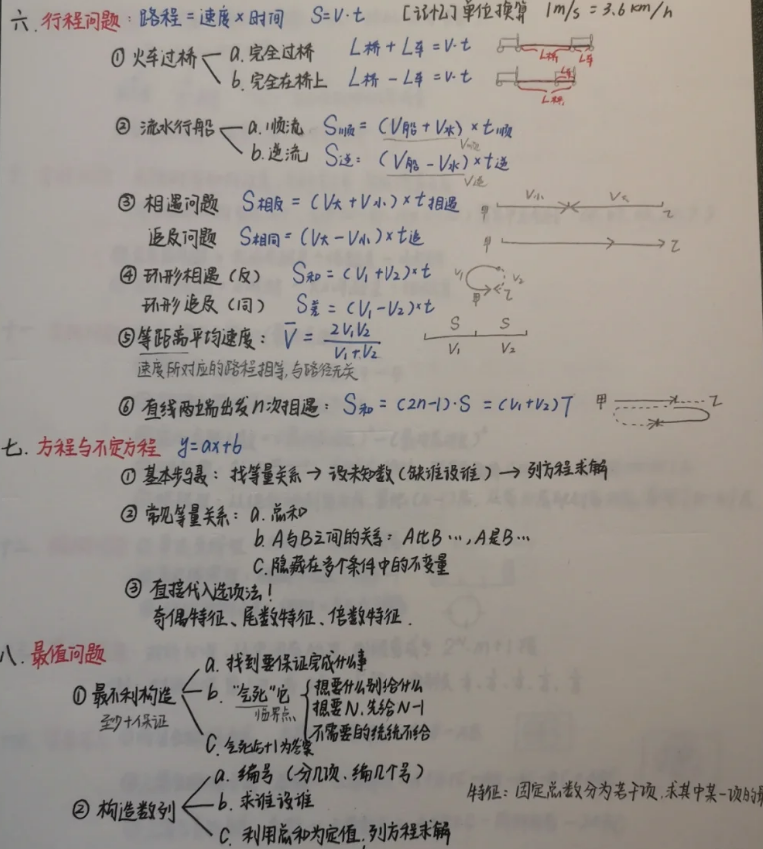 六. 行程问题: 路程=速度×时间 S=V·t [记忆]单位换算 1m/s=3.6km/h
① 火车过桥 a. 完全过桥 L桥+L车=v·t L桥 L车
b. 完全在桥上 L桥-L车=v·t L车 L桥
② 流水行船 a. 顺流 S顺=(V船+V水)×t顺 V顺
b. 逆流 S逆:(V船-V水)×t逆 V逆
③ 相遇问题 S相反=(V大+V小)×t相遇 甲 V小 V大 乙
追及问题 S相同=(V大-V小)×t追 甲 乙
④ 环形相遇(反) S和=(V1+V2)×t V1 V2 甲 乙
环形追及(同) S差=(V1-V2)×t
⑤ 等距离平均速度: V̄=2V1V2/V1+V2 S S V1 V2
速度所对应的路程相等,与路径无关
⑥ 直线两端出发n次相遇: S和=(2n-1)·S=(V1+V2)T 甲 乙
七. 方程与不定方程 y=ax+b
① 基本步骤: 找等量关系→设未知数(缺谁设谁)→列方程求解
② 常见等量关系: a. 总和
b. A与B之间的关系: A比B…, A是B…
C. 隐藏在多个条件中的不变量
③ 直接代入选项法!
奇偶特征、尾数特征、倍数特征.
八. 最值问题
① 最不利构造 a. 找到要保证完成什么事
至少+保证 b. "气死"它 临界点 想要什么别给什么
想要N,先给N-1
不需要的统统不给
C. 气死后+1为答案
② 构造数列 a. 编号(分几项,编几个号)
b. 求谁设谁 特征: 固定总数分为若干项,求其中某一项的
C. 利用总和为定值,列方程求解